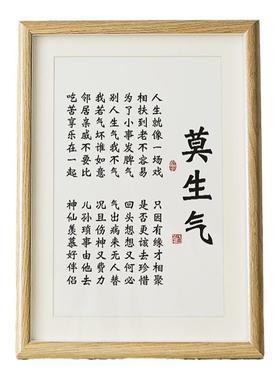 莫生气
人生就像一场戏 只因有缘才相聚
相扶到老不容易 是否更该去珍惜
为了小事发脾气 回头想想又何必
别人生气我不气 气出病来无人替
我若气坏谁如意 况且伤神又费力
邻居亲戚不要比 儿孙琐事由他去
吃苦享乐在一起 神仙羡慕好伴侣